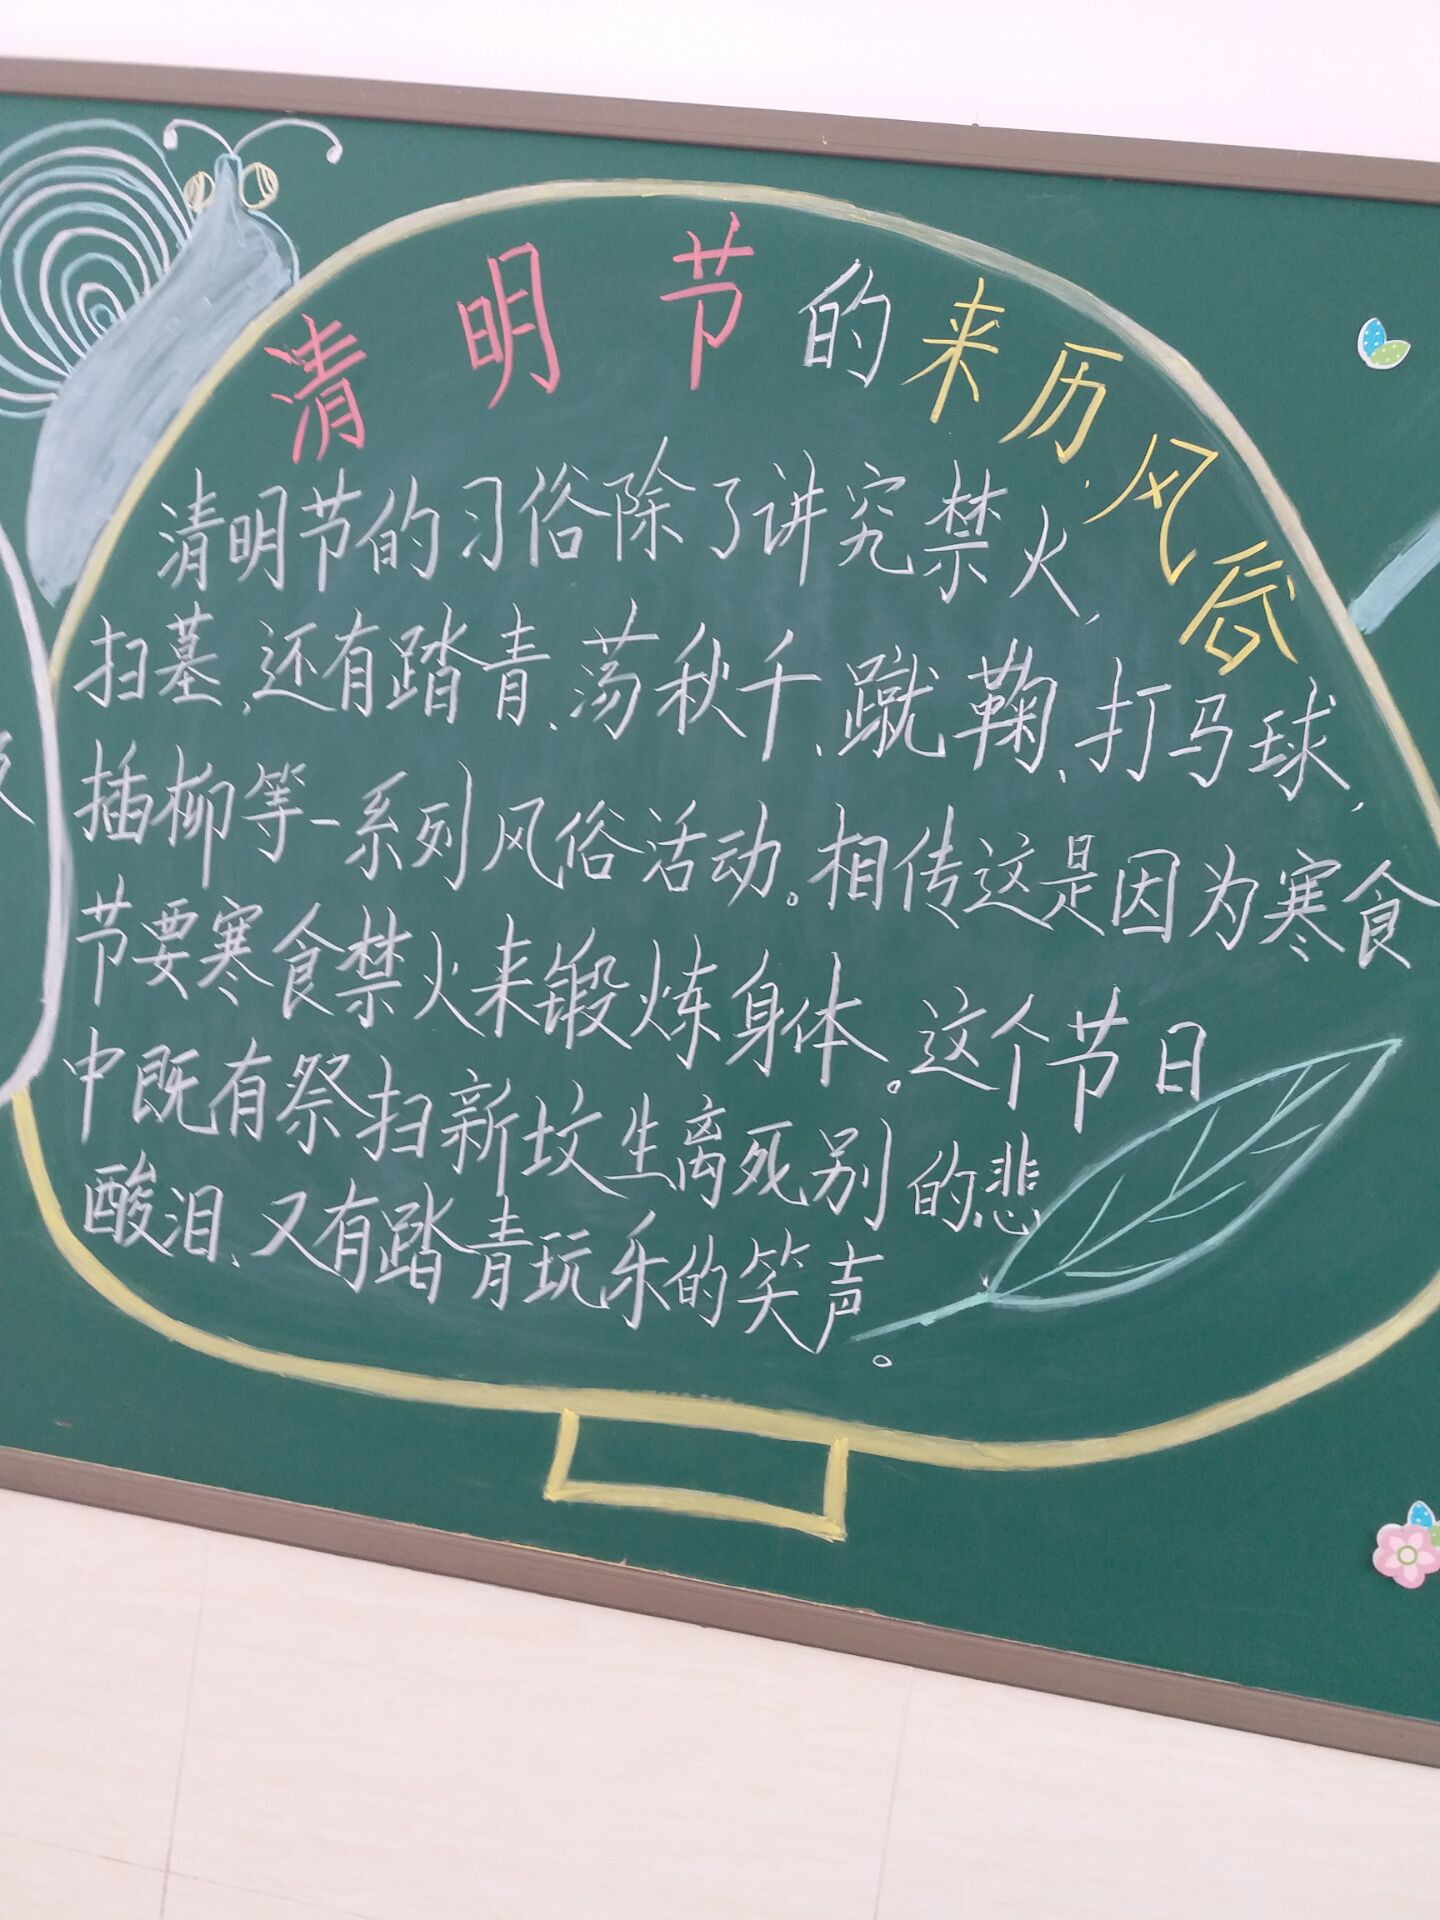 清明节的来历、风俗
清明节的习俗除了讲究禁火,
扫墓,还有踏青、荡秋千、蹴鞠、打马球,
插柳等一系列风俗活动。相传这是因为寒食
节要寒食禁火来锻炼身体。这个节日
中既有祭扫新坟生离死别的悲
酸泪、又有踏青玩乐的笑声。